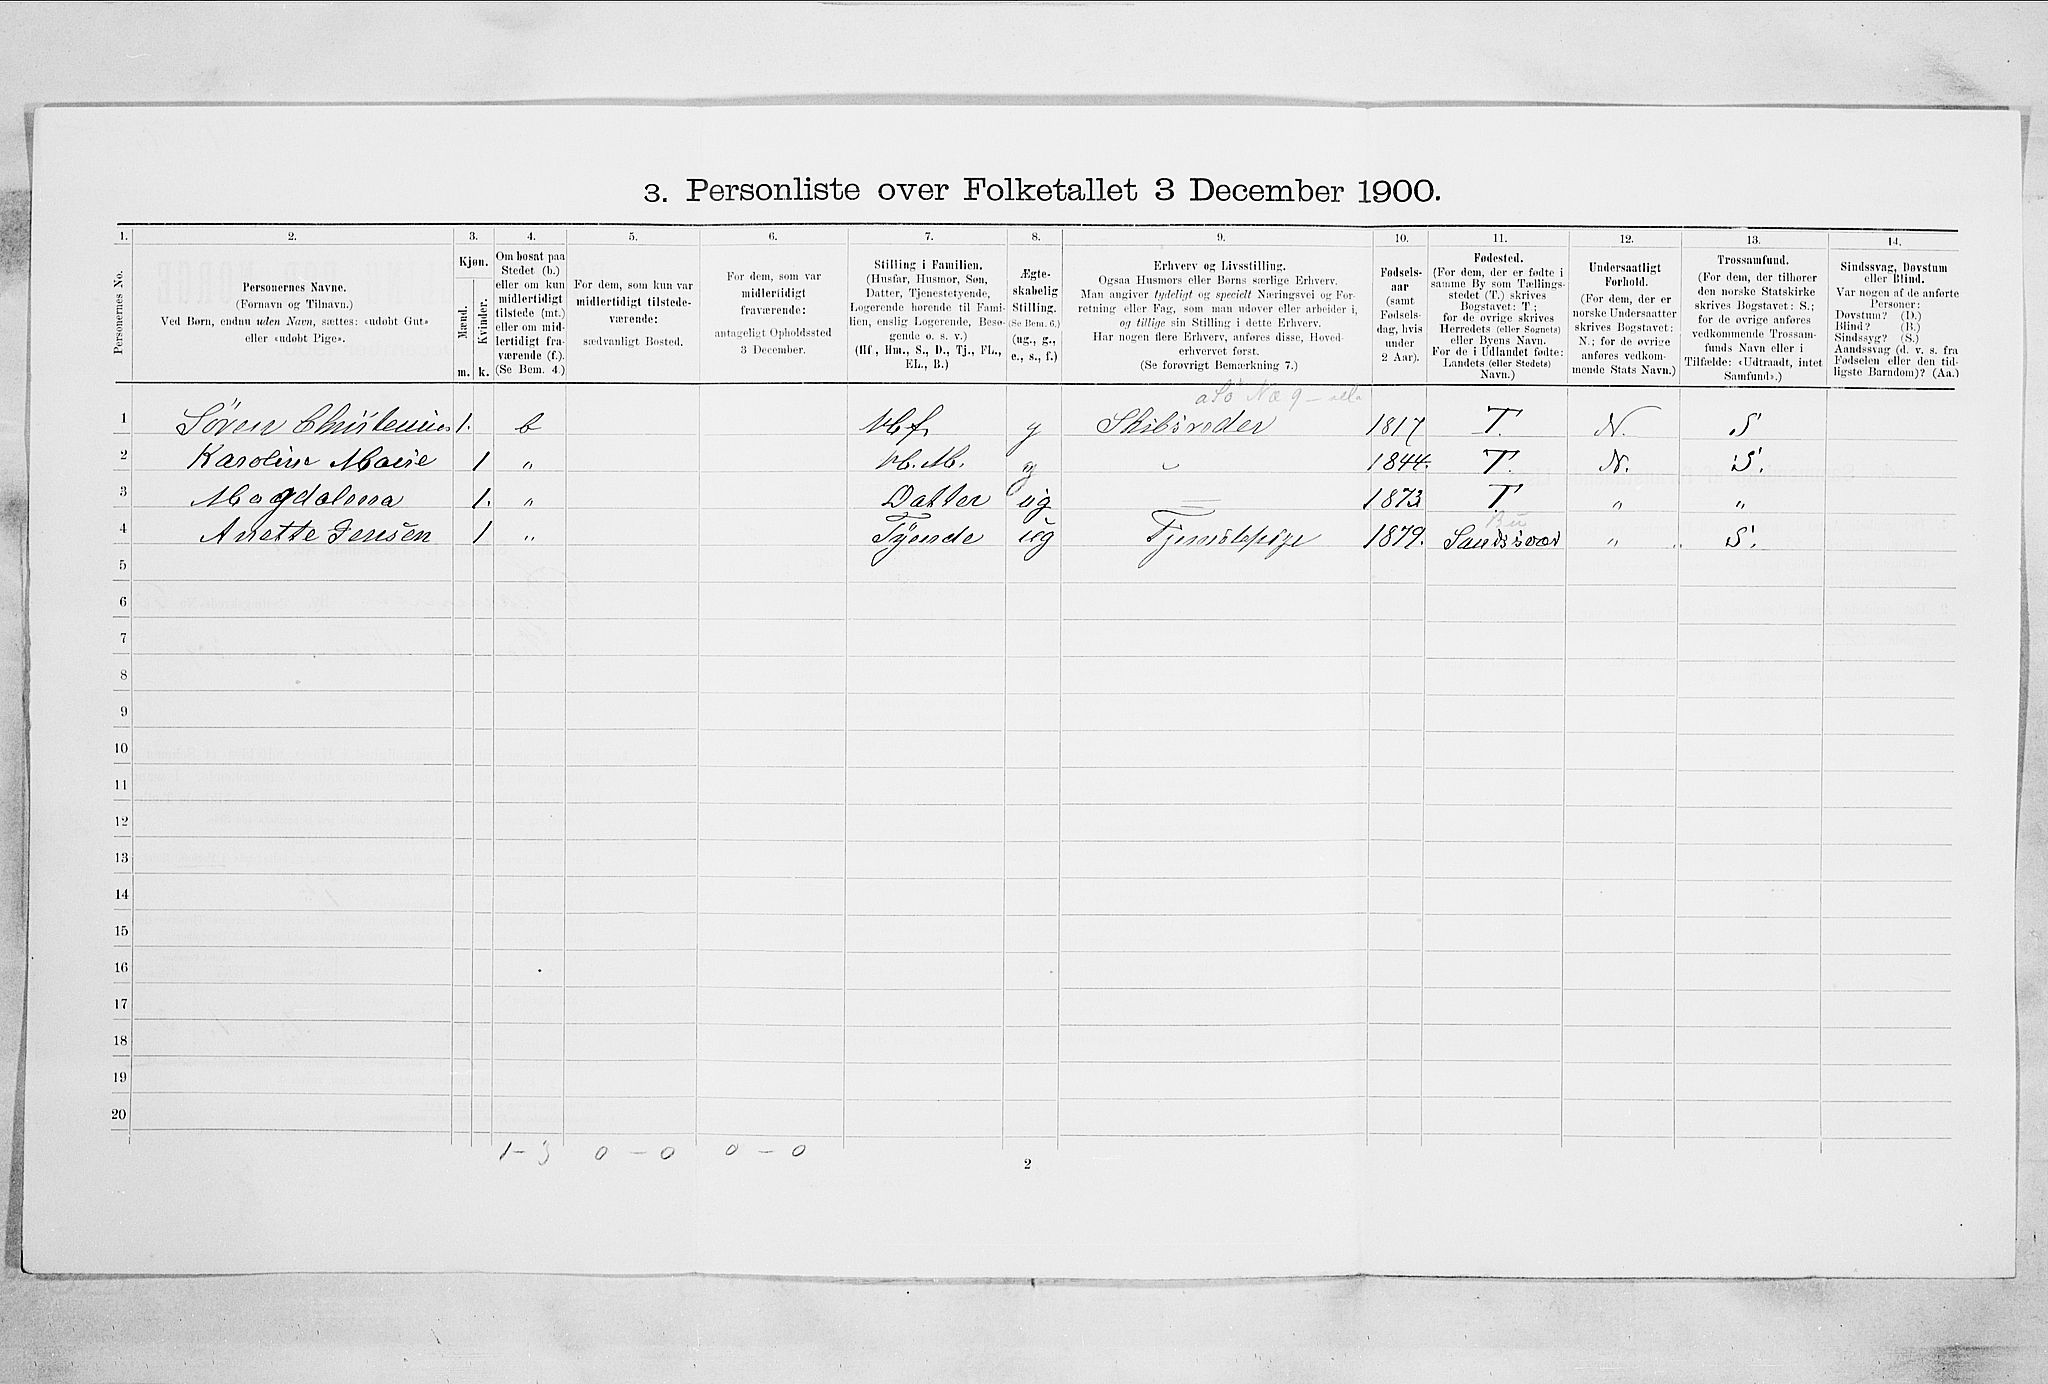 3. Personliste over Folketallet 3 December 1900.
1. 2. 3. 4. 5. 6. 7. 8. 9. 10. 11. 12. 13. 14.
Personernes No.
Personernes Navne.
(Fornavn og Tilnavn.)
Ved Børn, endnu uden Navn, sættes: «udøbt Gut»
eller «udøbt Pige».
Kjøn.
Mænd.
Kvinder.
m. k.
Om bosat paa
Stedet (b.)
eller om kun
midlertidigt
tilstede (mt.)
eller om mid-
lertidigt fra-
værende (f.).
(Se Bem. 4.)
For dem, som kun var
midlertidigt tilstede-
værende:
sædvanligt Bosted.
For dem, som var
midlertidigt
fraværende:
antageligt Opholdssted
3 December.
Stilling i Familien.
(Husfar, Husmor, Søn,
Datter, Tjenestetyende,
Logerende hørende til Fami-
lien, enslig Logerende, Besø-
gende o. s. v.)
(Hf., Hm., S., D., Tj., FL.,
EL., B.)
Ægte-
skabelig
Stilling.
(Se Bem. 6.)
(ug., g.,
e., s., f.)
Erhverv og Livsstilling.
Ogsaa Husmors eller Børns særlige Erhverv.
Man angiver tydeligt og specielt Næringsvei og For-
retning eller Fag, som man udøver eller arbeider i,
og tillige sin Stilling i dette Erhverv.
Har nogen flere Erhverv, anføres disse, Hoved-
erhvervet først.
(Se forøvrigt Bemærkning 7.)
Fødsels-
aar
(samt
Fødsels-
dag, hvis
under
2 Aar).
Fødested.
(For dem, der er fødte i
samme By som Tællings-
stedet (T.) skrives
Bogstavet: T;
for de øvrige skrives
Herredets (eller Sognets)
eller Byens Navn.
For de i Udlandet fødte:
Landets (eller Stedets)
Navn.)
Undersaatligt
Forhold.
(For dem, der er
norske Undersaatter
skrives Bogstavet:
N.; for de øvrige
anføres vedkom-
mende Stats Navn.)
Trossamfund.
(For dem, der tilhører
den norske Statskirke
skrives Bogstavet: S.;
for de øvrige anføres
vedkommende Trossam-
funds Navn eller i
Tilfælde: «Udtraadt, intet
Samfund».)
Sindssvag, Døvstum
eller Blind.
Var nogen af de anførte
Personer:
Døvstum? (D.)
Blind? (B.)
Sindssyg? (S.)
Aandssvag (d. v. s. fra
Fødselen eller den tid-
ligste Barndom)? (Aa.)
1 Sören Christensen 1. b Hf. g Skibsreder 1817 T. N. S
2 Karoline Marie 1 " H.M. g 1844. T. N. S.
3 Magdalena 1. " Datter ug 1873 T " "
4 Anette Jensen 1 " Tyende ug Tjenestepige 1879. Sandsvær " S.
Bu
5
6
7
8
9
10
11
12
13
14
15
16
17
18
19
20
1 - 3 0 - 0 0 - 0
2